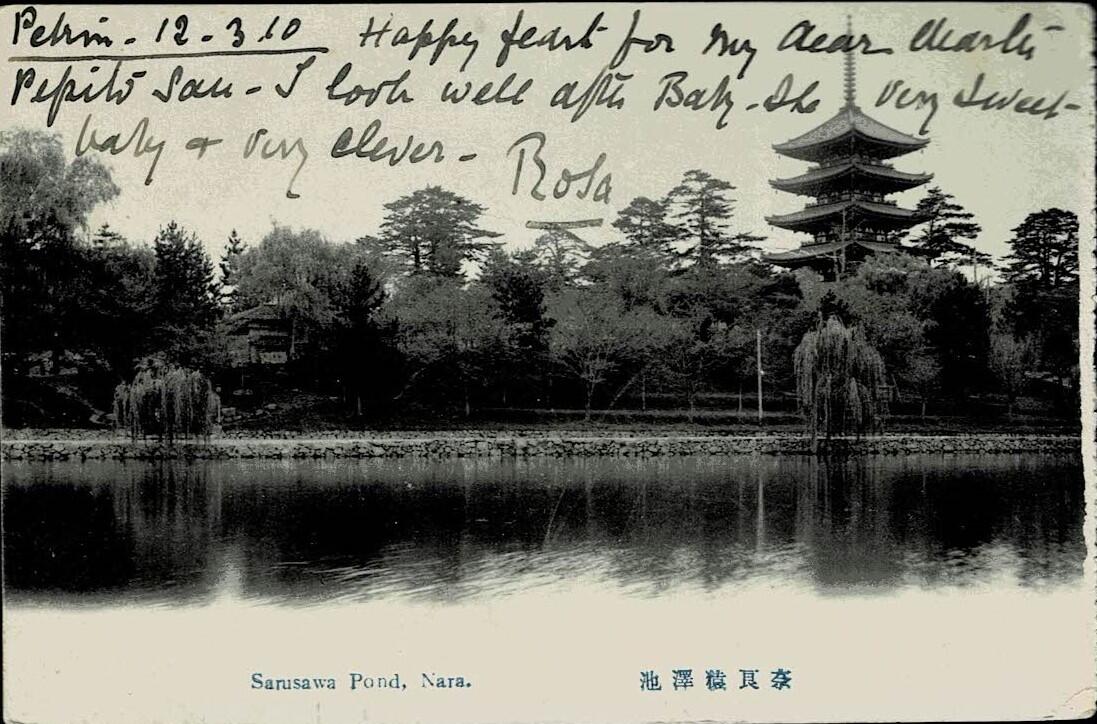 Pekin - 12 - 3.10 Happy feast for my dear dearest
Pepito San - I look well after Baby - She very sweet
baby & very clever -
Rosa
Sarusawa Pond, Nara.
池澤猿良奈